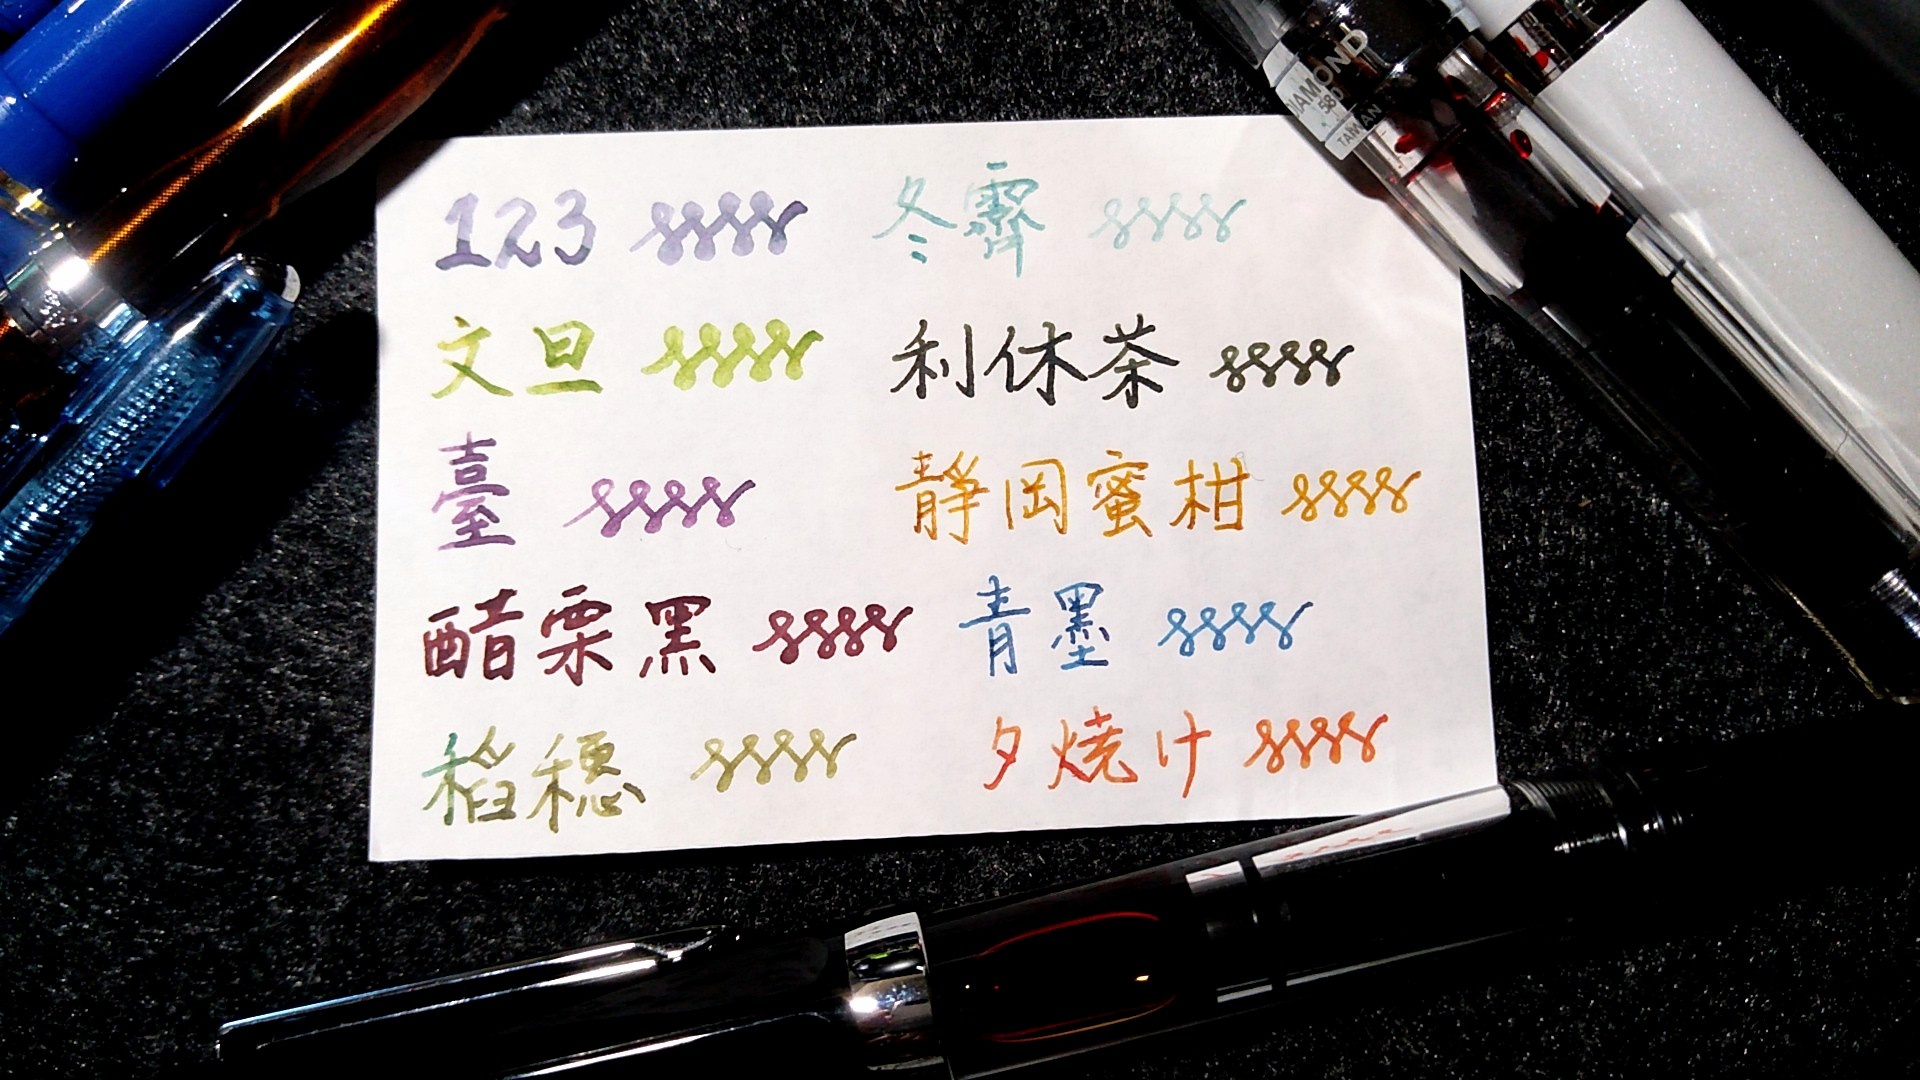 123 冬霽
文旦 利休茶
臺 靜岡蜜柑
醋栗黑 青墨
稻穗 夕焼け
DIAMOND
580
TAIWAN